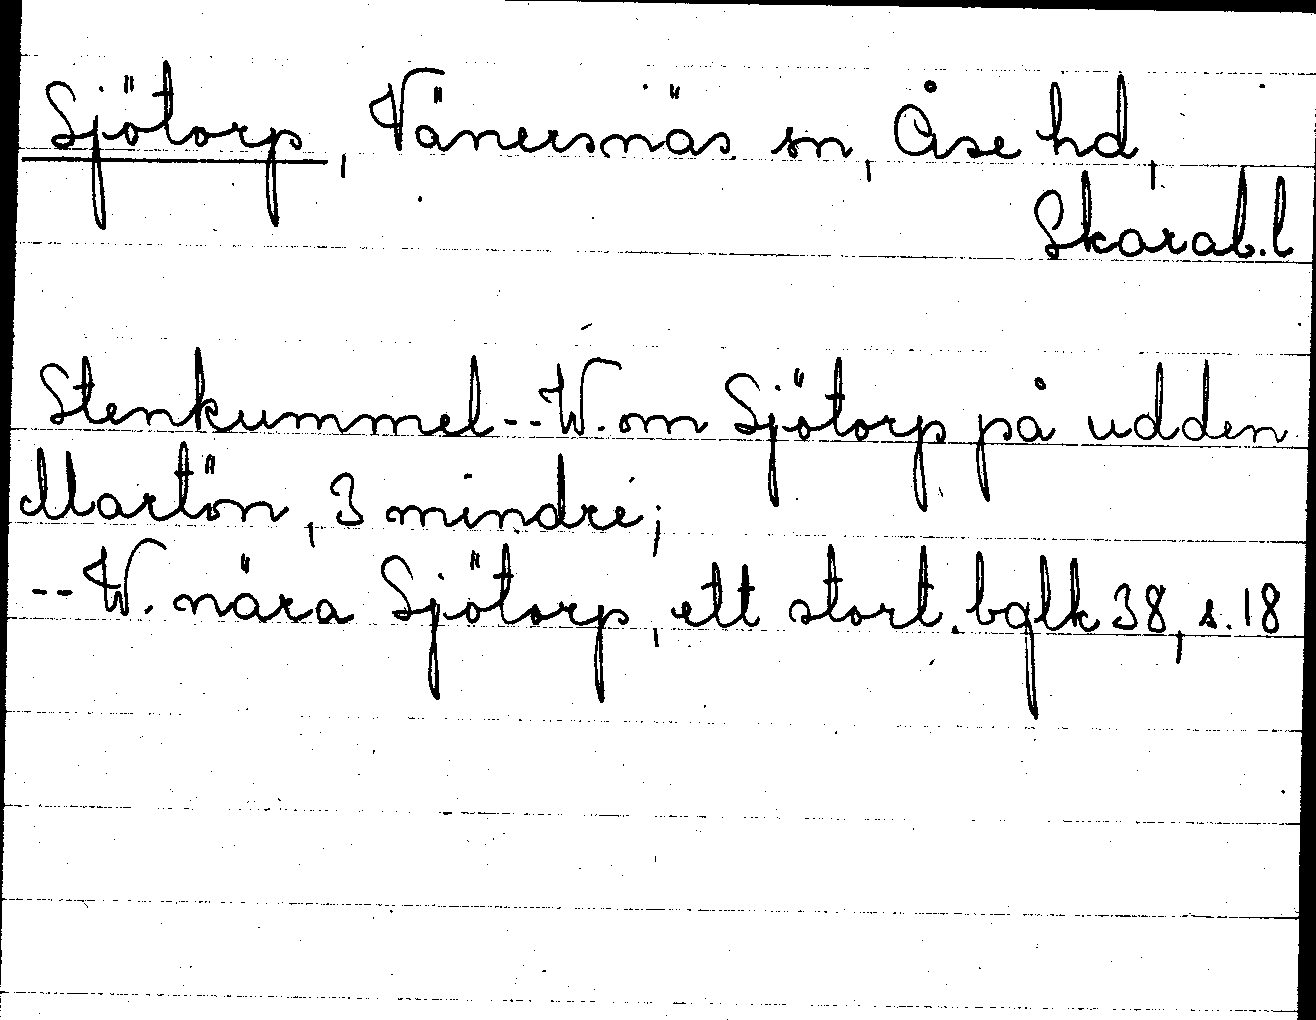 Sjötorp, Vänersnäs sn, Åse hd,
Skarab.l
Stenkummel--W. om Sjötorp på udden
Martön, 3 mindre;
--W. nära Sjötorp, ett stort. bglk 38, s. 18